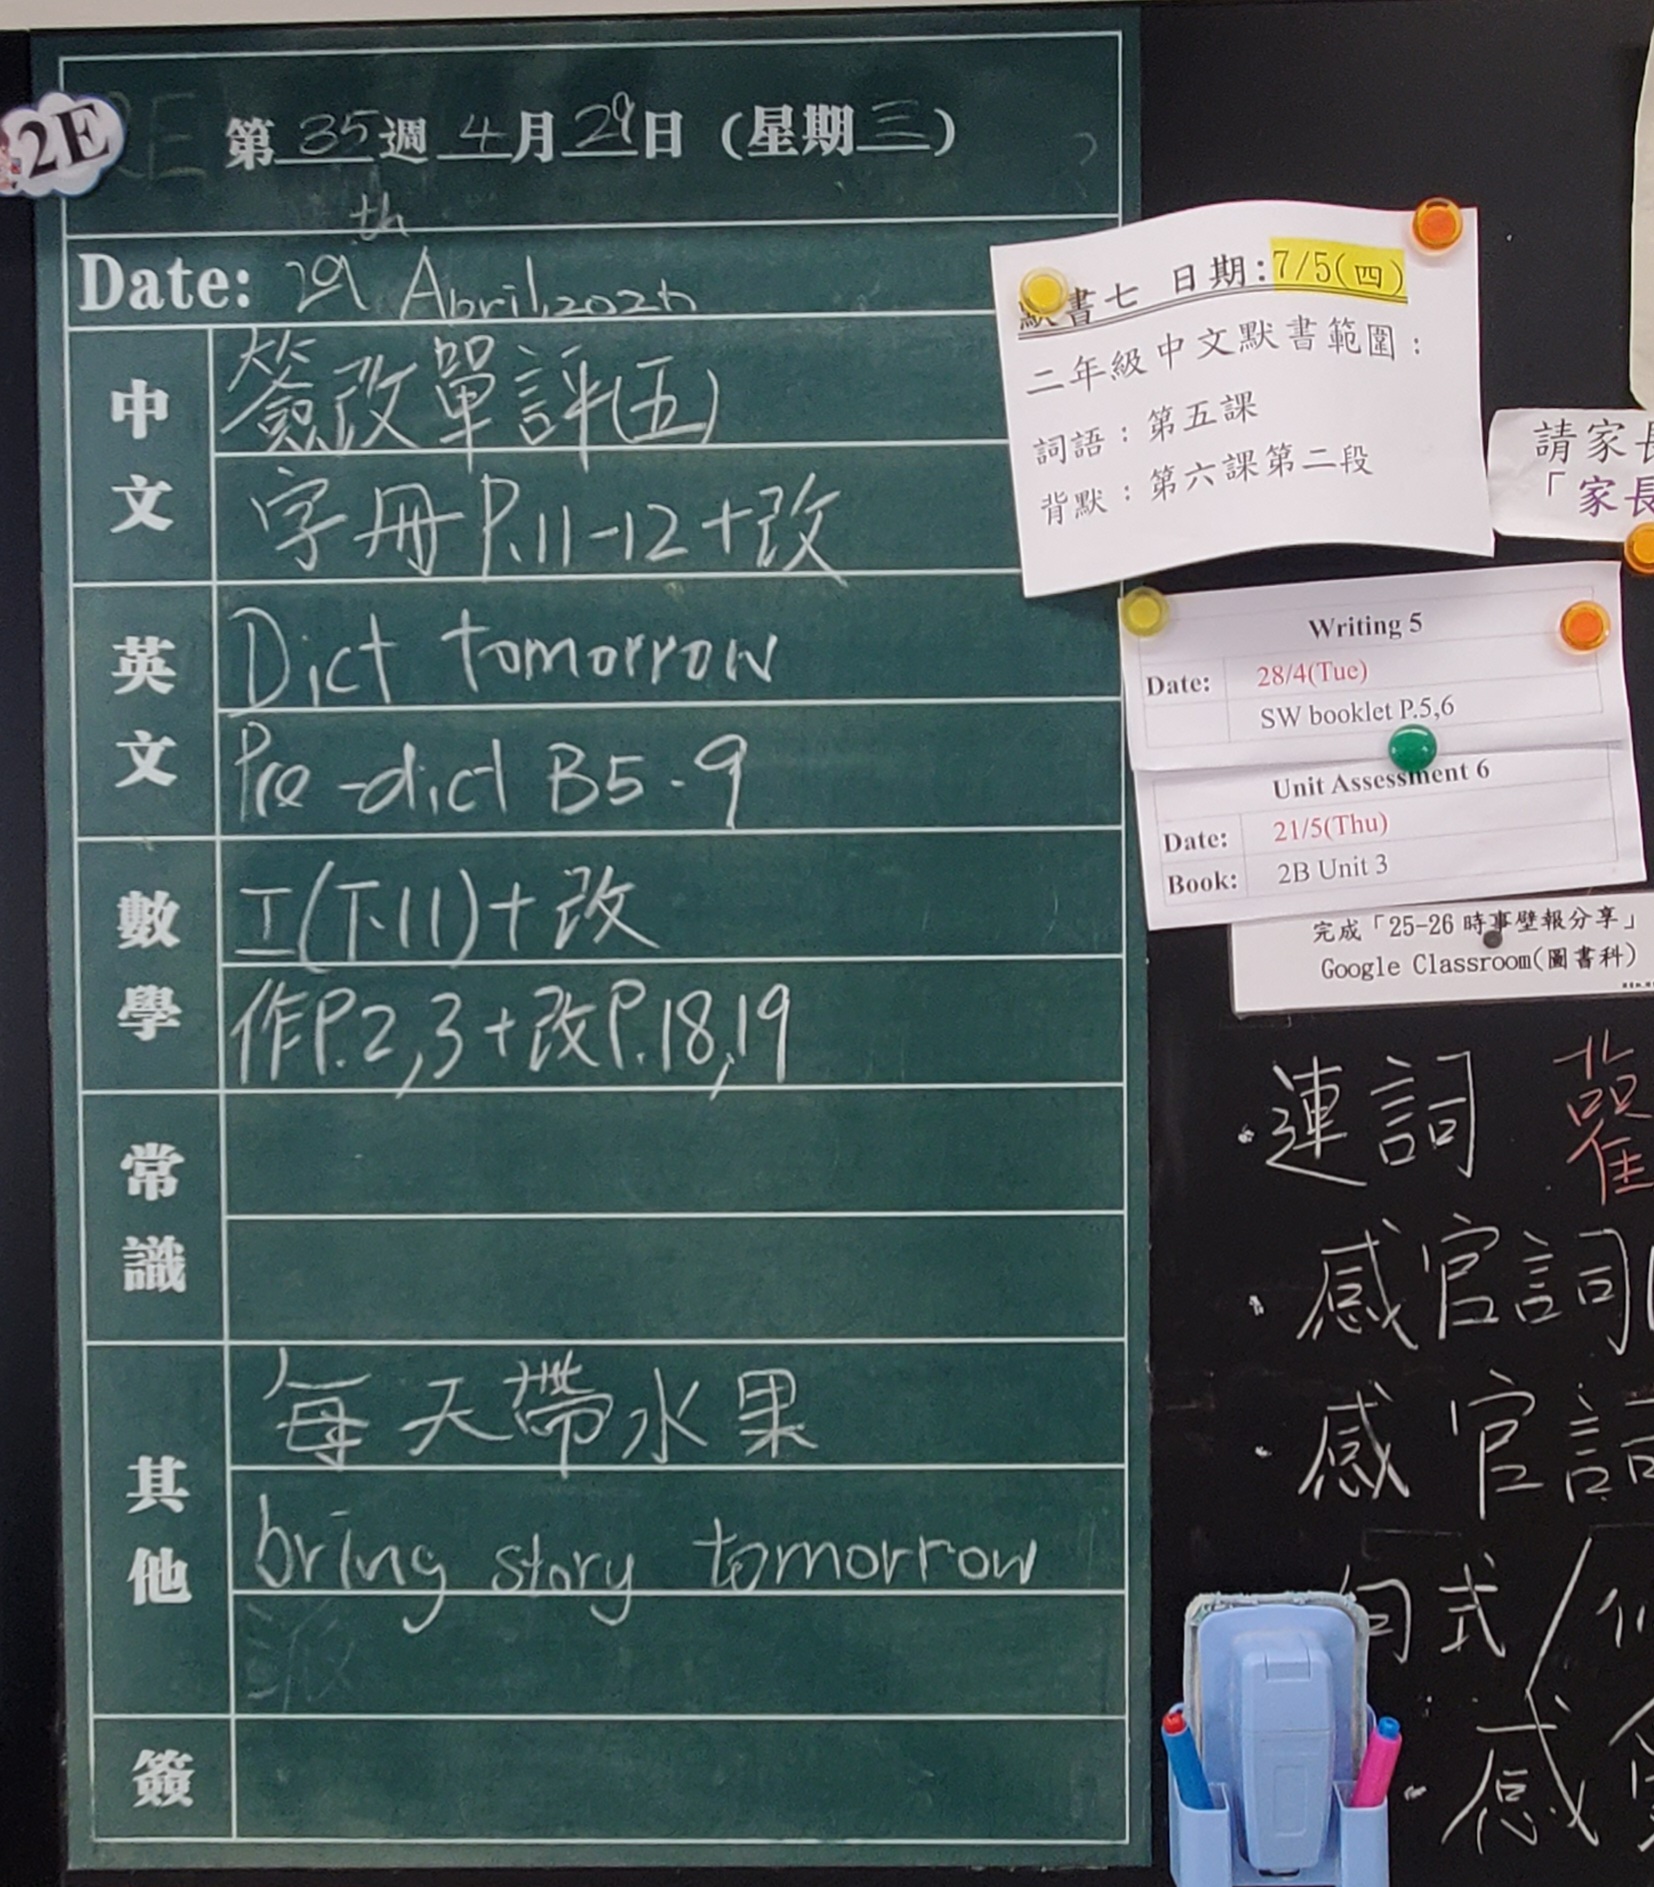 2E
第 35 週 4 月 29 日 (星期 三)
Date: 29th April, 2026
中文
簽改單評(五)
字冊 P.11-12+改
英文
Dict tomorrow
Pre-dict B5-9
數學
工(下11)+改
作P.2,3+改P.18,19
常識
其他
每天帶水果
bring story tomorrow
派
簽
默書七 日期:7/5(四)
二年級中文默書範圍:
詞語:第五課
背默:第六課第二段
請家長
「家長
Writing 5
Date: 28/4(Tue)
SW booklet P.5,6
Unit Assessment 6
Date: 21/5(Thu)
Book: 2B Unit 3
完成「25-26 時事壁報分享」
Google Classroom(圖書科)
·連詞
·感官詞
·感官詞
句式/
·感